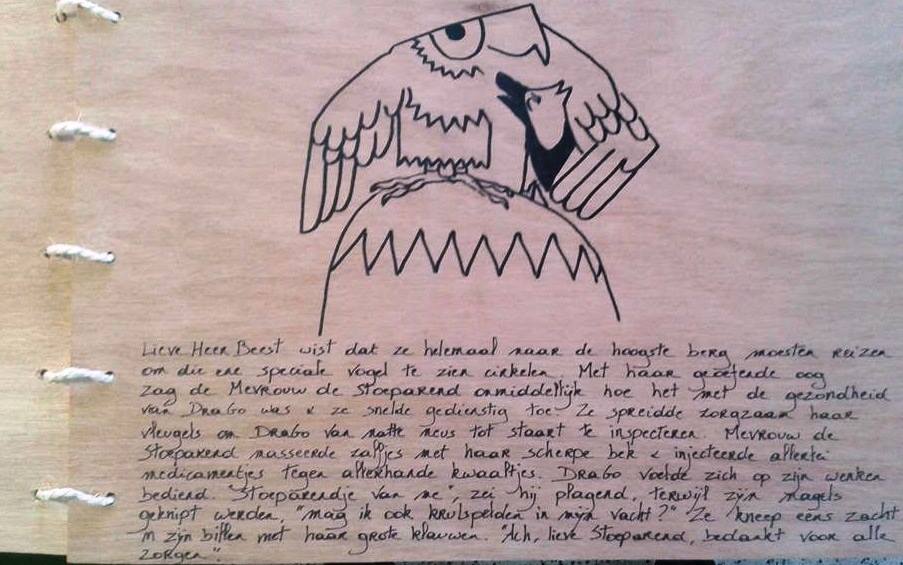 Lieve Heer Beest wist dat ze helemaal naar de hoogste berg moesten reizen
om die ene speciale vogel te zien cirkelen. Met haar geoefende oog
zag de Mevrouw de Stoeparend onmiddellijk hoe het met de gezondheid
van DraGo was & ze snelde gedienstig toe. Ze spreidde zorgzaam haar
vleugels om DraGo van natte neus tot staart te inspecteren. Mevrouw de
Stoeparend masseerde zalfjes met haar scherpe bek & injecteerde allerlei
medicamentjes tegen allerhande kwaaltjes. DraGo voelde zich op zijn wenken
bediend. "Stoeparendje van me", zei hij plagend, terwijl zijn nagels
geknipt werden, "mag ik ook krulspelden in mijn vacht?" Ze kneep eens zacht
in zijn billen met haar grote klauwen. "Ach, lieve Stoeparend, bedankt voor alle
zorgen."